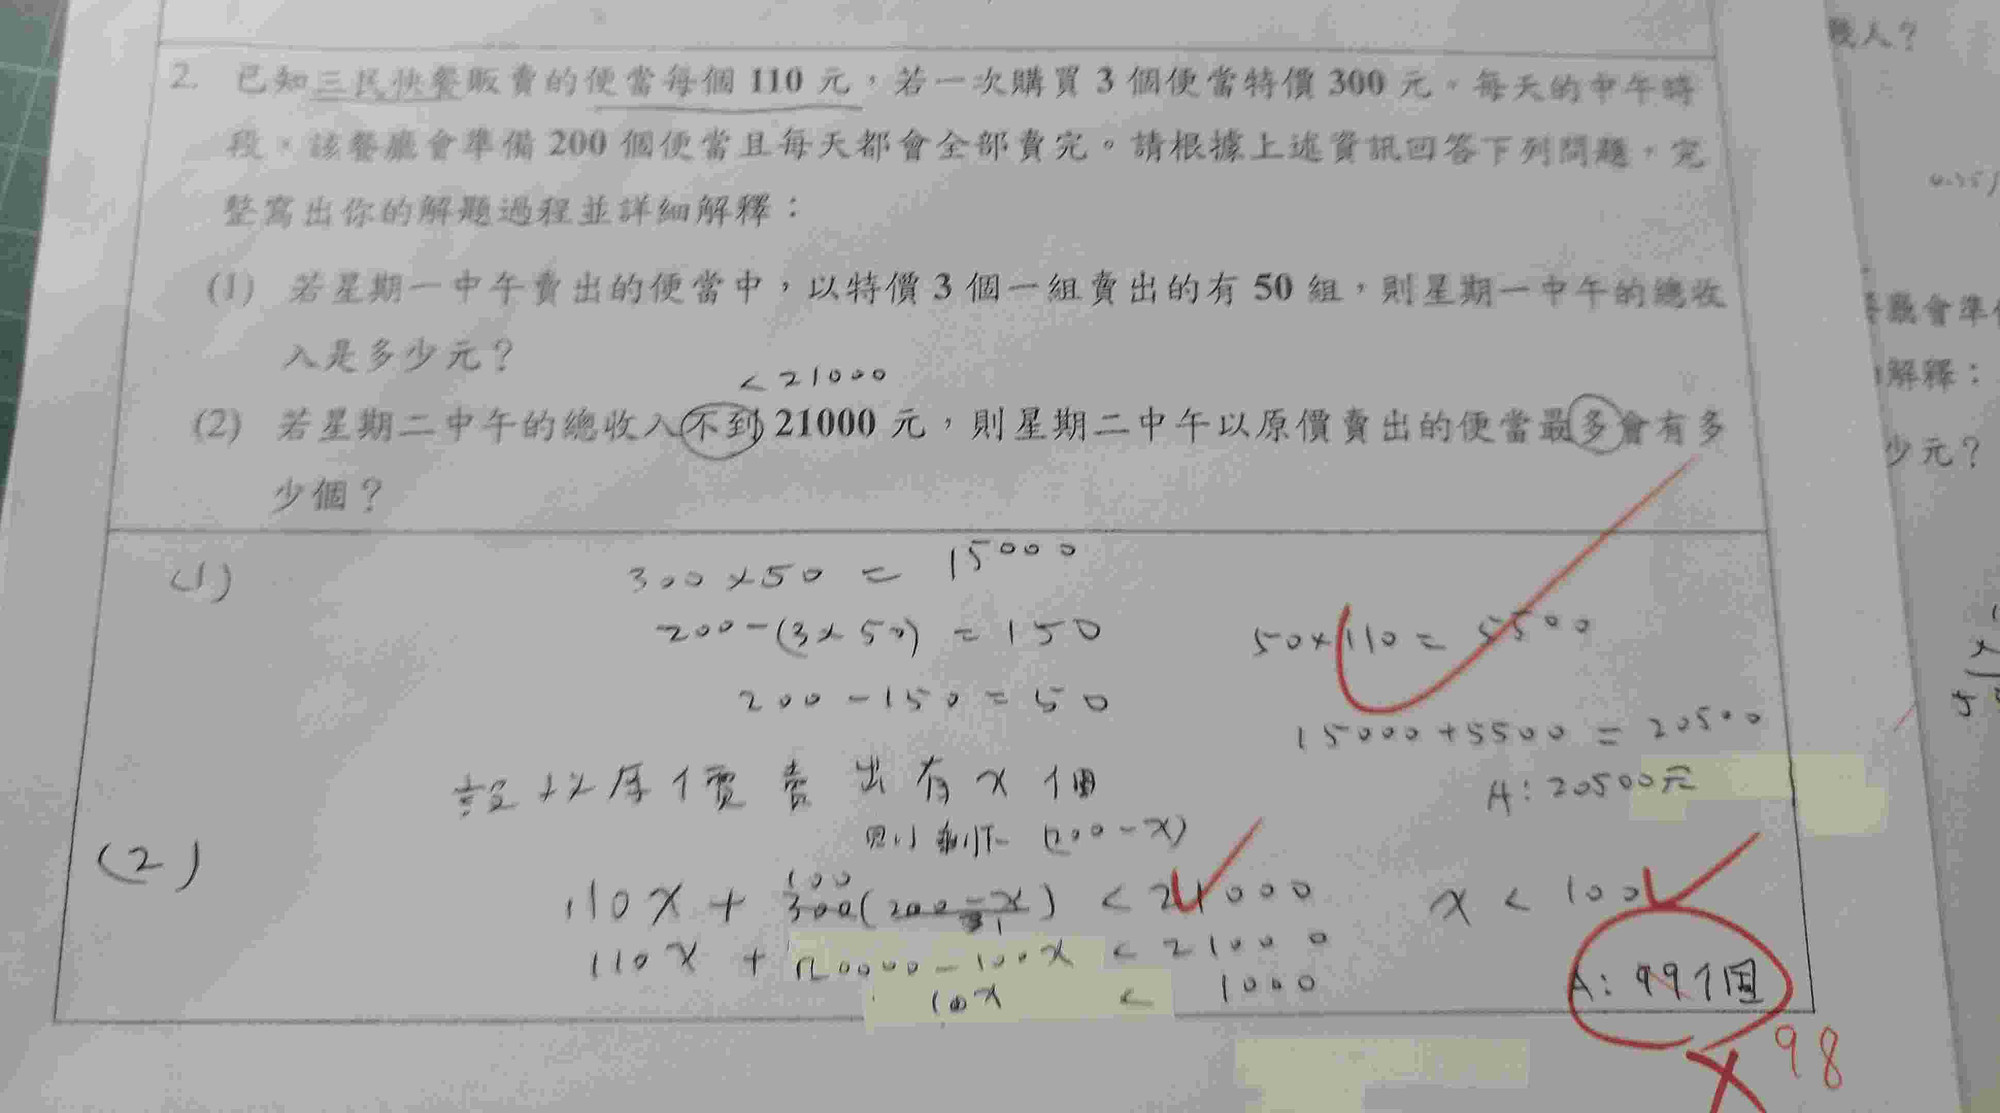 2. 已知三民快餐販賣的便當每個 110 元，若一次購買 3 個便當特價 300 元。每天的中午時
段，該餐廳會準備 200 個便當且每天都會全部賣完。請根據上述資訊回答下列問題，完
整寫出你的解題過程並詳細解釋：
(1) 若星期一中午賣出的便當中，以特價 3 個一組賣出的有 50 組，則星期一中午的總收
入是多少元？
< 21000
(2) 若星期二中午的總收入不到 21000 元，則星期二中午以原價賣出的便當最多會有多
少個？
(1)
300×50 = 15000
200-(3×50) = 150
200-150=50
50×110 = 5500
15000+5500 = 20500
A: 20500元
(2)
設以原價賣出有x個
則剩下(200-x)
110x + 100 300(200-x / 3) < 21000
110x + 20000-100x < 21000
10x < 1000
x < 100
A: 99個
98
幾人？
餐廳會準
解釋：
少元？